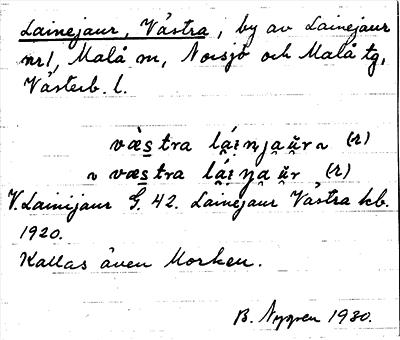 Lainejaur, Västra, by av Lainejaur
nr 1, Malå sn, Norsjö och Malå tg,
Västerb. l.
væ̀s̱tra lá̯i̯nja̯ŭr ~ (r)
~ væs̱tra lá̯i̯ŋa̯ŭr (r)
V. Lainijaur G. 42. Lainejaur Västra kb.
1920.
Kallas även Morken.
B. Nygren 1930.